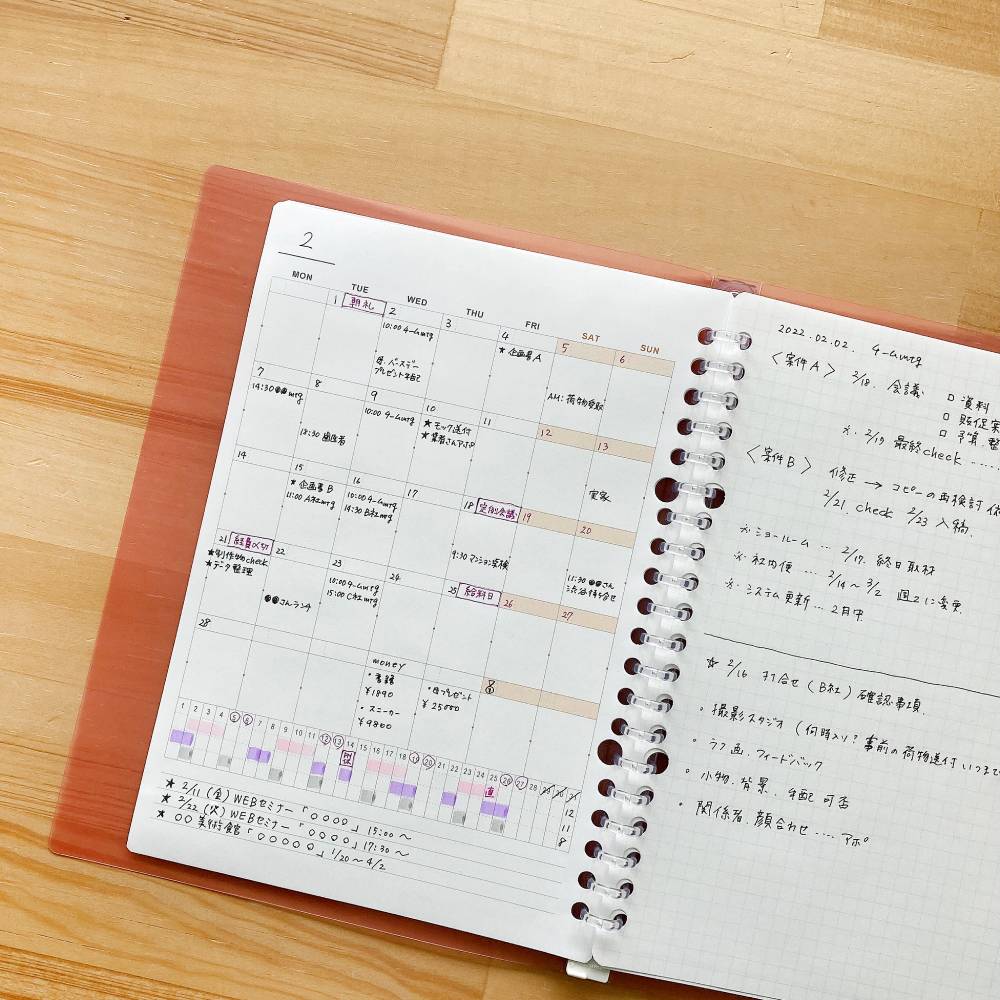 2
MON TUE WED THU FRI SAT SUN
1 朝礼
2
10:00 チームmtg
母.バースデー
プレゼント手配
3
4
★ 企画書A
5
AM:荷物受取
6
7
14:30 ●●mtg
8
18:30 歯医者
9
10:00 チームmtg
10
★ モック送付
★ 業者さんアポ
11
12
13
実家
14
15
★ 企画書B
11:00 A社mtg
16
10:00 チームmtg
14:30 B社mtg
17
18 定例会議
9:30 マンション点検
19
20
11:30 ●●さん
渋谷待ち合せ
21 経費〆切
★制作物check
★データ整理
22
●●さんランチ
23
10:00 チームmtg
15:00 C社mtg
24
25 給料日
26
27
28
money
・書籍
¥1890
・スニーカー
¥9800
・母プレゼント
¥25000
1 2 3 4 5 6 7 8 9 10 11 12 13 14 15 16 17 18 19 20 21 22 23 24 25 26 27 28 29 30 31
直
12
11
8
★ 2/11 (金) WEBセミナー「○○○○」15:00〜
★ 2/22 (火) WEBセミナー「○○○○」17:30〜
★ ○○美術館「○○○○○」1/20〜4/2
2022.02.02. チームmtg
〈案件A〉 2/18. 会議 □ 資料
□ 販促案
□ 予算.整
※. 2/17 最終check .....
〈案件B〉 修正 → コピーの再検討
2/21. check 2/23 入稿.
※ショールーム ... 2/17. 終日取材
※. 社内便 ... 2/14〜3/2 週2に変更.
※. システム更新 ... 2月中.
☆ 2/16 打合せ (B社) 確認事項.
・撮影スタジオ (何時入り? 事前の荷物送付 いつまで
・ラフ画.フィードバック
・小物.背景.手配 可否
・関係者.顔合わせ .... アポ